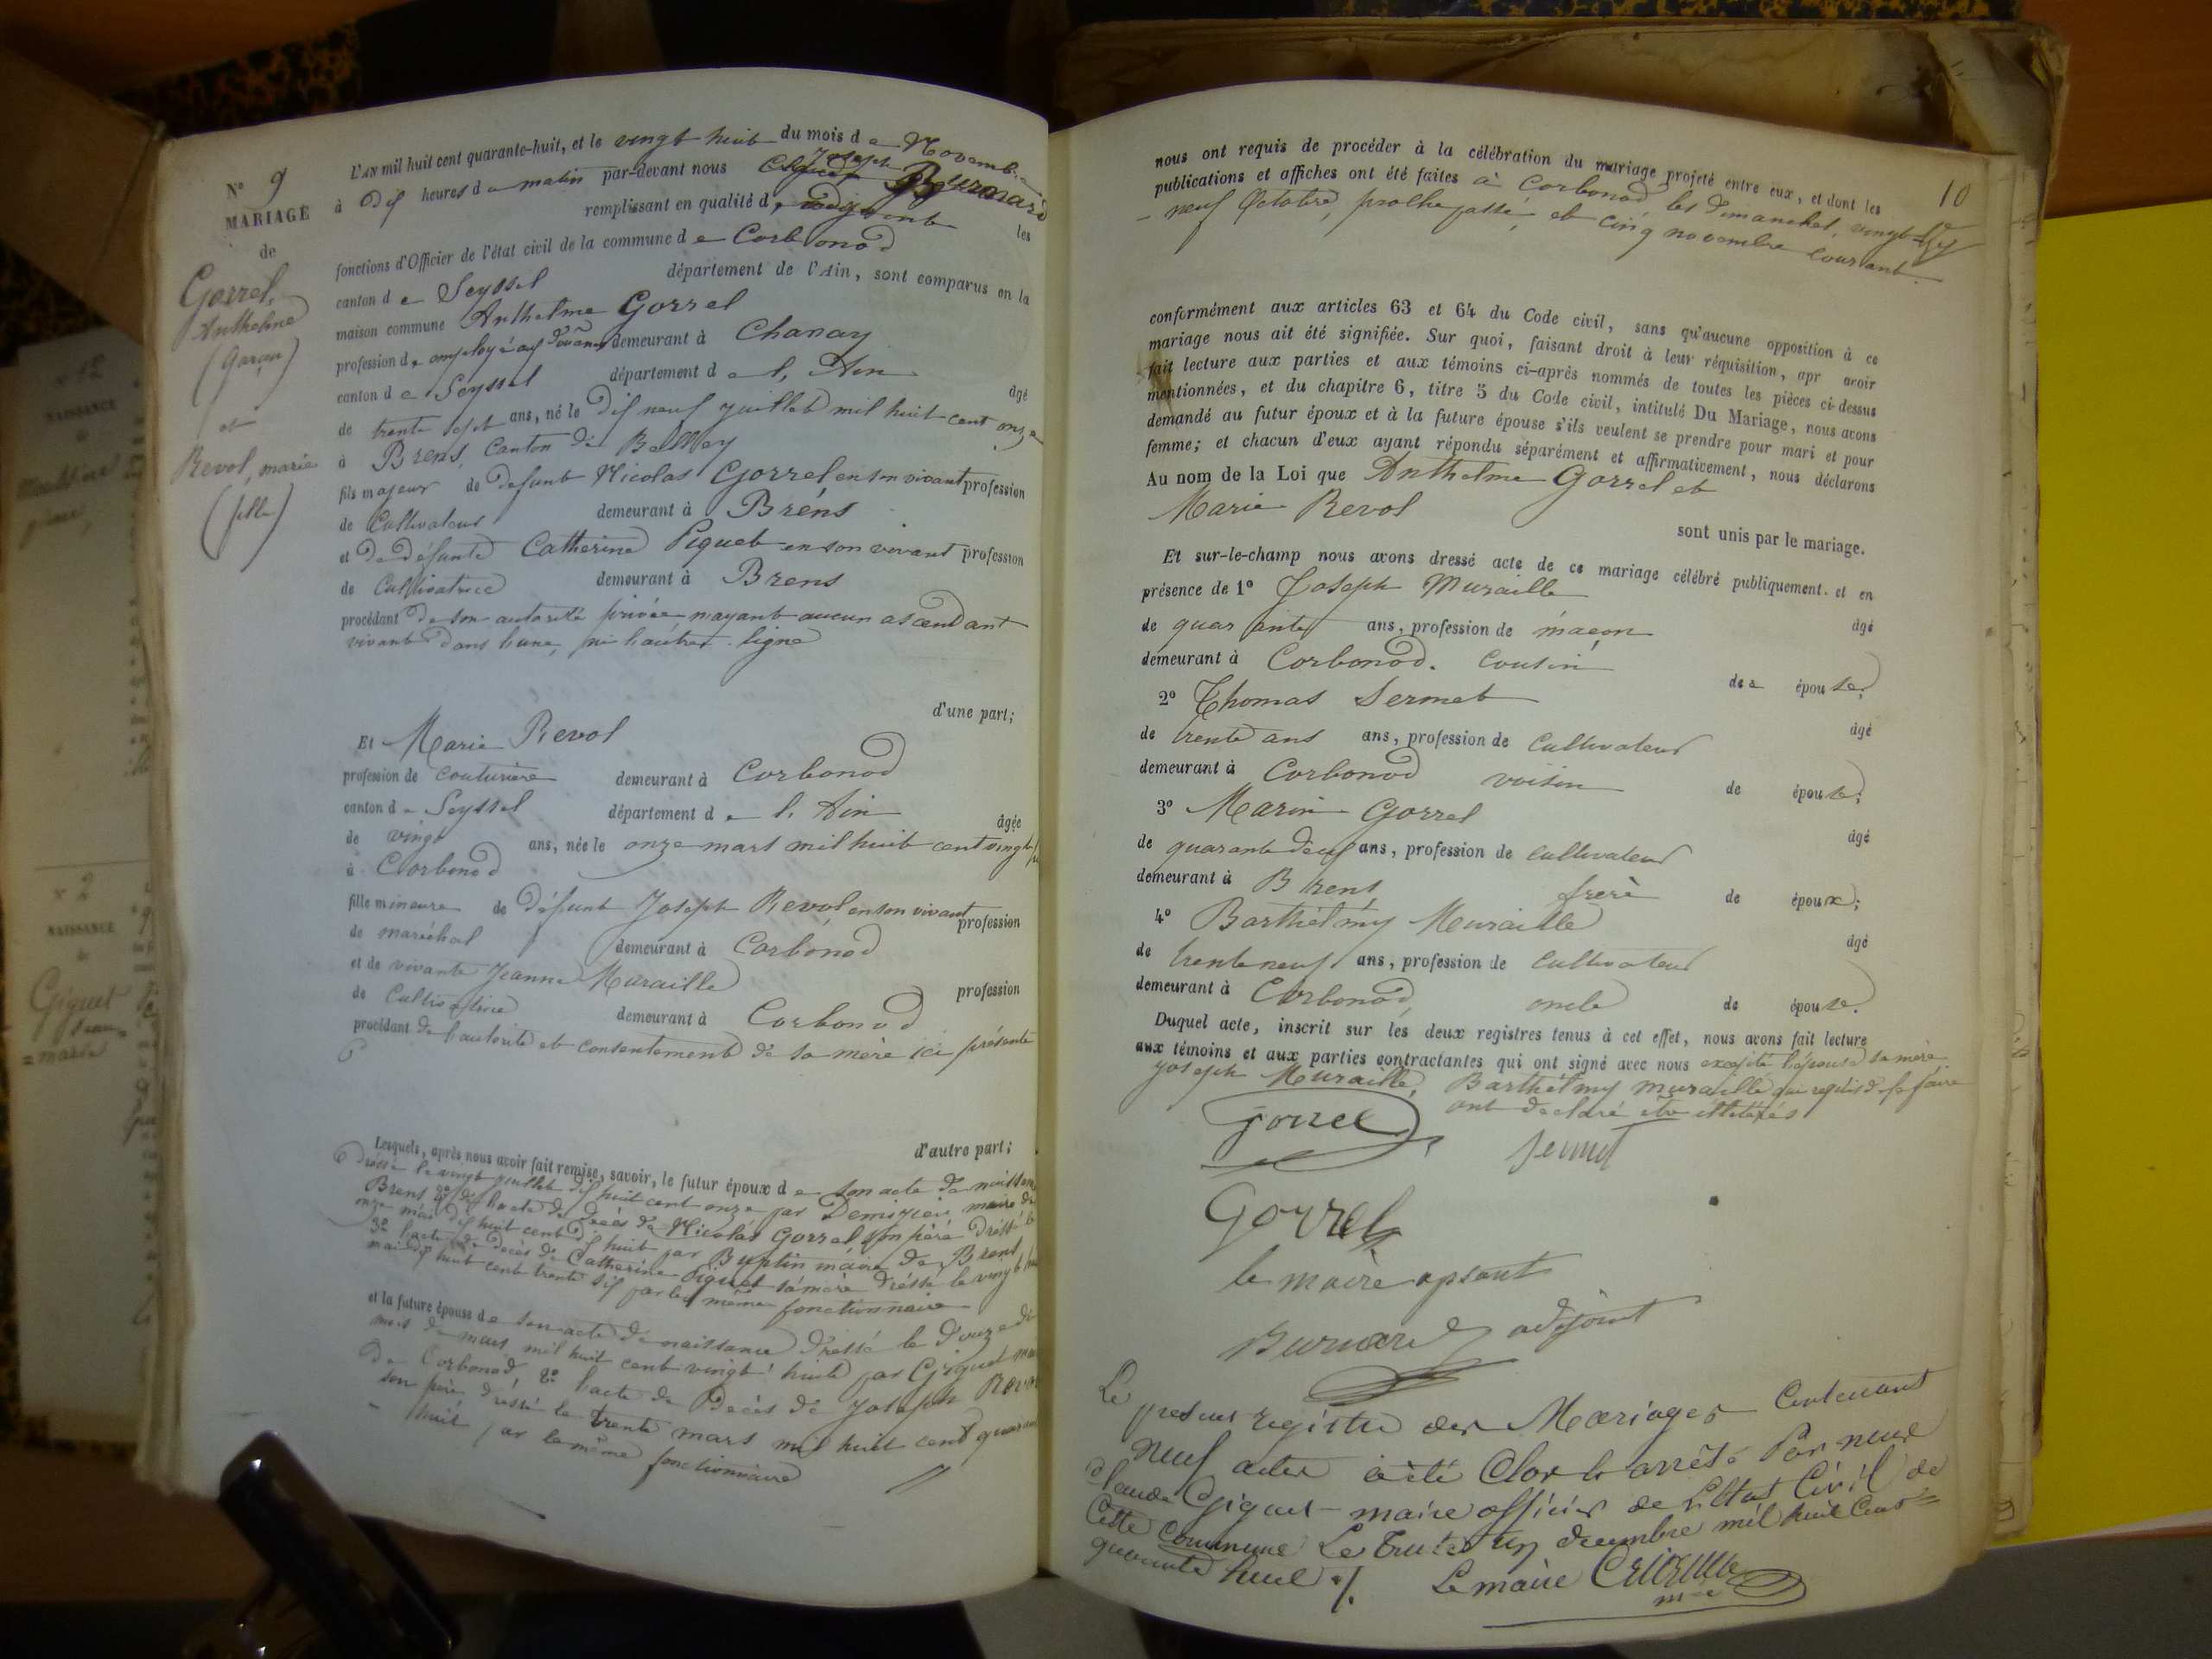 N° 9
MARIAGE
de
Gorrel,
Anthelme
(garçon)
et
Revol, marie
(fille)
L'AN mil huit cent quarante-huit, et le vingt huit du mois de Novembre
à dix heures de matin par-devant nous Joseph Burnard
remplissant en qualité d'adjoint les
fonctions d'Officier de l'état civil de la commune de Corbonod
canton de Seyssel département de l'Ain, sont comparus en la
maison commune Anthelme Gorrel
profession de employé aux douanes demeurant à Chanay
canton de Seyssel département de l'Ain âgé
de trente sept ans, né le dix neuf juillet mil huit cent onze
à Brens, Canton de Belley
fils majeur de defunt Nicolas Gorrel en son vivant profession
de Cultivateur demeurant à Bréns
et de défunte Catherine Piquet en son vivant profession
de Cultivatrice demeurant à Brens
procédant de son autorité privée n'ayant aucun ascendant
vivant dans l'une, ni l'autre ligne
d'une part;
Et Marie Revol
profession de couturière demeurant à Corbonod
canton de Seyssel département de l'Ain âgée
de vingt ans, née le onze mars mil huit cent vingt
à Corbonod
fille mineure de défunt Joseph Revol en son vivant profession
de maréchal demeurant à Corbonod
et de vivante Jeanne Muraille profession
de Cultivatrice demeurant à Corbonod
procédant de l'autorité et consentement de sa mère ici présente
d'autre part;
Lesquels, après nous avoir fait remise, savoir, le futur époux de son acte de naissance
dréssé le vingt juillet dix huit cent onze par maire de
Brens 2° de l'acte de decès de Nicolas Gorrel son père dréssé le
onze mai dix huit cent dix huit par maire de Brens
3° l'acte de decès de Catherine Piquet sa mère dréssé le vingt
mai dix huit cent trente six par le même fonctionnaire
et la future épouse de son acte de naissance dréssé le douze du
mois de mars mil huit cent vingt huit par Giguet maire
de Corbonod, 2° l'acte de Decès de Joseph Revol
son père dréssé le trente mars mil huit cent quarante
- huit par le même fonctionnaire
10
nous ont requis de procéder à la célébration du mariage projeté entre eux, et dont les
publications et affiches ont été faites à Corbonod les dimanches, vingt
- neuf Octobre, proche passé, et cinq novembre courant
conformément aux articles 63 et 64 du Code civil, sans qu'aucune opposition à ce
mariage nous ait été signifiée. Sur quoi, faisant droit à leur réquisition, apr avoir
fait lecture aux parties et aux témoins ci-après nommés de toutes les pièces ci-dessus
mentionnées, et du chapitre 6, titre 5 du Code civil, intitulé Du Mariage, nous avons
demandé au futur époux et à la future épouse s'ils veulent se prendre pour mari et pour
femme; et chacun d'eux ayant répondu séparément et affirmativement, nous déclarons
Au nom de la Loi que Anthelme Gorrel et
Marie Revol
sont unis par le mariage.
Et sur-le-champ nous avons dressé acte de ce mariage célébré publiquement. et en
présence de 1° Joseph Muraille
âgé
de quarante ans, profession de maçon
demeurant à Corbonod. Cousin de épouse,
2° Thomas Sermet
âgé
de trente ans ans, profession de Cultivateur
demeurant à Corbonod voisin de épouse;
3° Marin Gorrel
âgé
de quarante deux ans, profession de cultivateur
demeurant à Brens frère de époux;
4° Barthélmy Muraille
âgé
de trente neuf ans, profession de Cultivateur
demeurant à Corbonod, oncle de épouse.
Duquel acte, inscrit sur les deux registres tenus à cet effet, nous avons fait lecture
aux témoins et aux parties contractantes qui ont signé avec nous excepté l'épouse sa mère
Joseph Muraille, Barthélmy muraille qui requis de le faire
ont declaré être illitérés
Gorrel
Sermet
Gorrel
le maire absant
Burnard adjoint
Le present registre des Mariages Contenant
neuf actes à été Clos et arrêté Par nous
Claude Giguet maire officier de L'Etat Civil de
Cette Commune Le Trente un decembre mil huit Cent =
quarante huit ./. Le maire